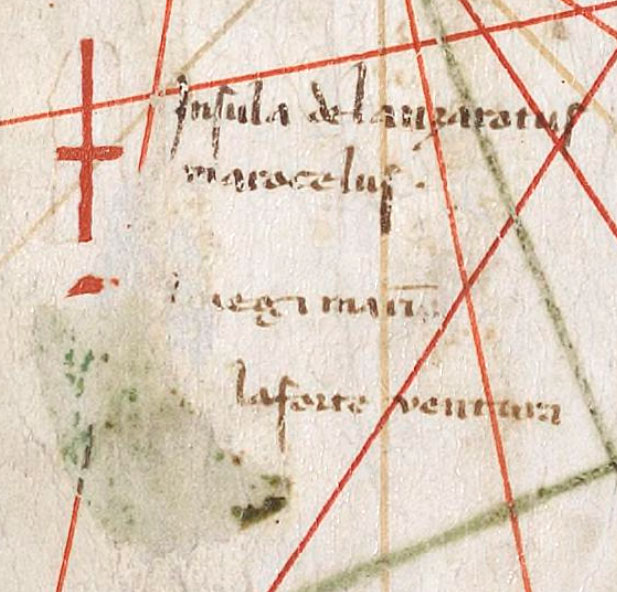 Insula de lanzarotus
marocelus.
vegi marī
la forte ventura